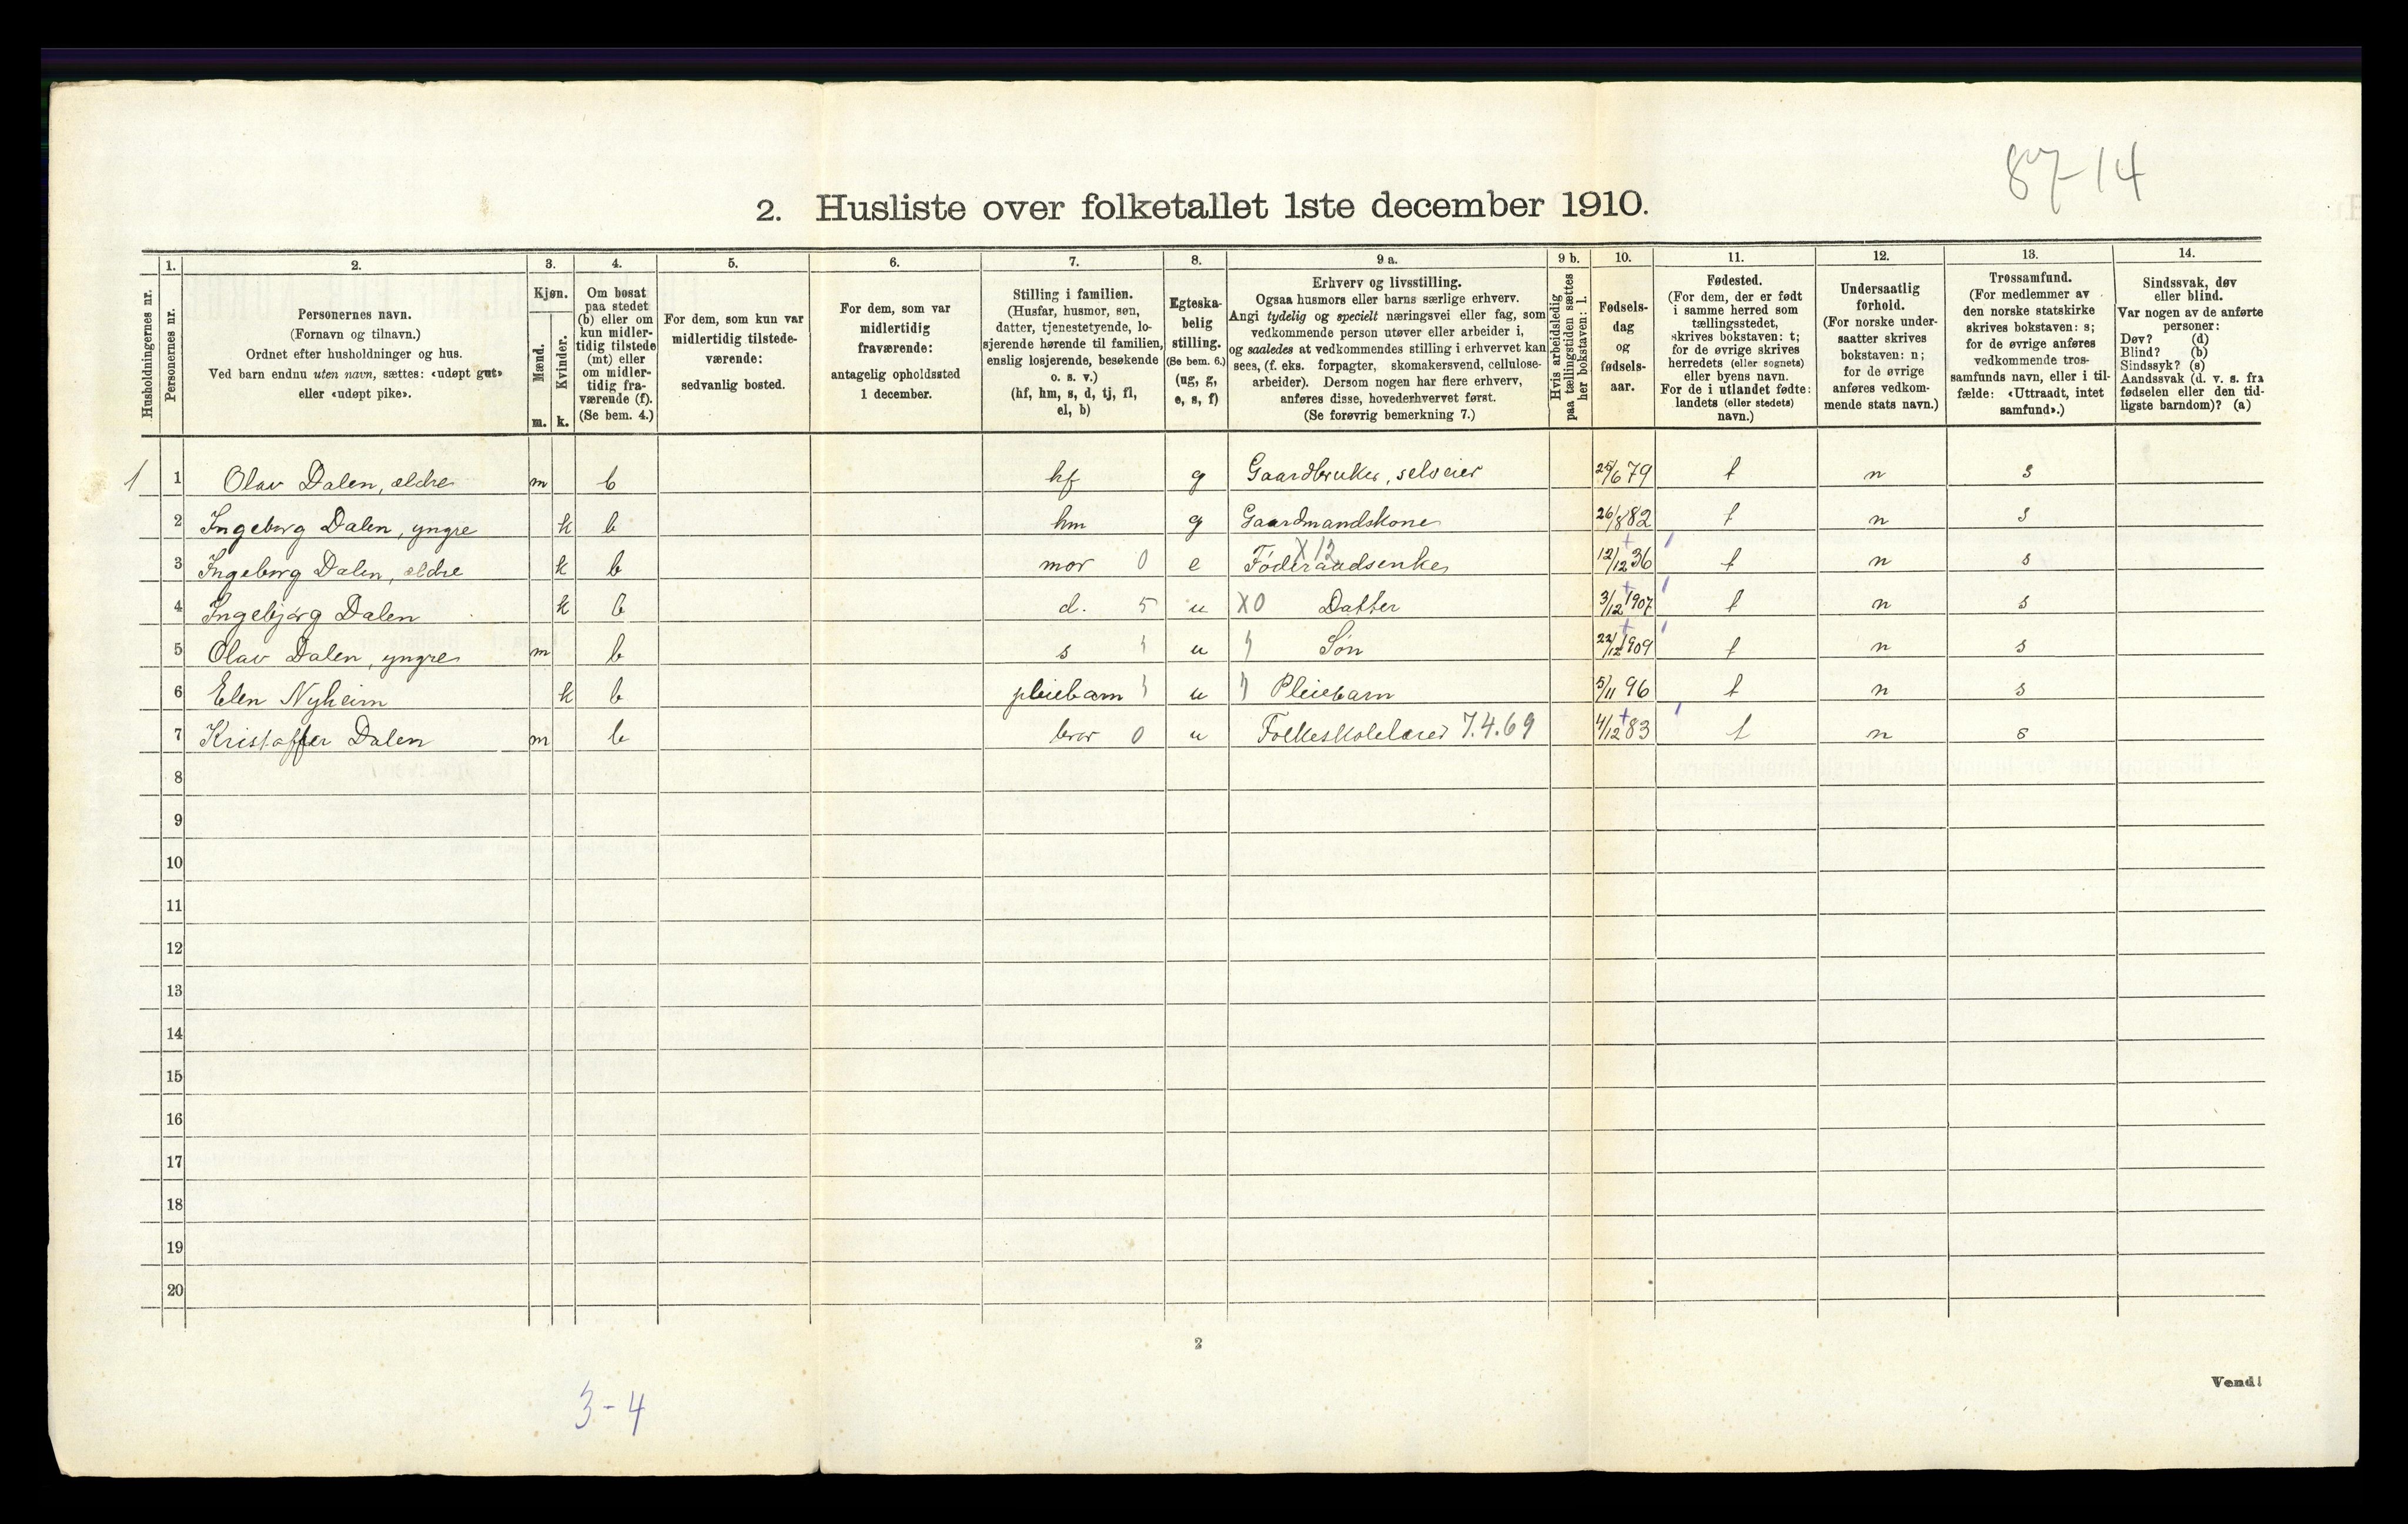 87-14
2. Husliste over folketallet 1ste december 1910.
Husholdningernes nr.
1.
Personernes nr.
2.
Personernes navn.
(Fornavn og tilnavn.)
Ordnet efter husholdninger og hus.
Ved barn endnu uten navn, sættes: «udøpt gut»
eller «udøpt pike».
3.
Kjøn.
Mænd.
Kvinder.
m. k.
4.
Om bosat
paa stedet
(b) eller om
kun midler-
tidig tilstede
(mt) eller
om midler-
tidig fra-
værende (f).
(Se bem. 4.)
5.
For dem, som kun var
midlertidig tilstede-
værende:
sedvanlig bosted.
6.
For dem, som var
midlertidig
fraværende:
antagelig opholdssted
1 december.
7.
Stilling i familien.
(Husfar, husmor, søn,
datter, tjenestetyende, lo-
sjerende hørende til familien,
enslig losjerende, besøkende
o. s. v.)
(hf, hm, s, d, tj, fl,
el, b)
8.
Egteska-
belig
stilling.
(Se bem. 6.)
(ug, g,
e, s, f)
9 a.
Erhverv og livsstilling.
Ogsaa husmors eller barns særlige erhverv.
Angi tydelig og specielt næringsvei eller fag, som
vedkommende person utøver eller arbeider i,
og saaledes at vedkommendes stilling i erhvervet kan
sees, (f. eks. forpagter, skomakersvend, cellulose-
arbeider). Dersom nogen har flere erhverv,
anføres disse, hovederhvervet først.
(Se forøvrig bemerkning 7.)
9 b.
Hvis arbeidsledig
paa tællingstiden sættes
her bokstaven: l.
10.
Fødsels-
dag
og
fødsels-
aar.
11.
Fødested.
(For dem, der er født
i samme herred som
tællingsstedet,
skrives bokstaven: t;
for de øvrige skrives
herredets (eller sognets)
eller byens navn.
For de i utlandet fødte:
landets (eller stedets)
navn.)
12.
Undersaatlig
forhold.
(For norske under-
saatter skrives
bokstaven: n;
for de øvrige
anføres vedkom-
mende stats navn.)
13.
Trossamfund.
(For medlemmer av
den norske statskirke
skrives bokstaven: s;
for de øvrige anføres
vedkommende tros-
samfunds navn, eller i til-
fælde: «Uttraadt, intet
samfund».)
14.
Sindssvak, døv
eller blind.
Var nogen av de anførte
personer:
Døv? (d)
Blind? (b)
Sindssyk? (s)
Aandssvak (d. v. s. fra
fødselen eller den tid-
ligste barndom)? (a)
1 1 Olav Dalen, ældre m b hf g Gaardbruker, selveier 25/6 79 t n s
2 Ingeborg Dalen, yngre k b hm g Gaardmandskone 26/8 82 t n s
3 Ingeborg Dalen, ældre k b mor 0 e Føderaadsenke X 12 12/12 36 t n s
4 Ingebjørg Dalen k b d. 5 u X0 Datter 3/12 1907 t n s
5 Olav Dalen, yngre m b s u Søn 22/12 1909 t n s
6 Elen Nyheim k b pleiebarn u Pleiebarn 5/11 96 t n s
7 Kristoffer Dalen m b bror 0 u Folkeskolelærer 7.4.69 4/12 83 t n s
8
9
10
11
12
13
14
15
16
17
18
19
20
2
Vend!
3-4